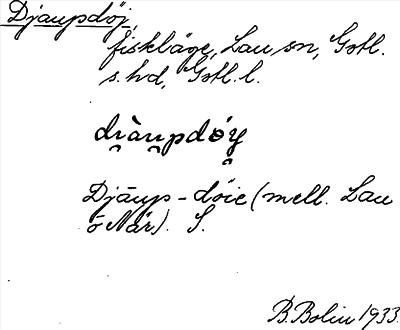 Djaupdöj,
fiskläge, Lau sn, Gotl.
s. hd, Gotl. l.
di̯àu̯pdóy̯
Djāup-döie (mell. Lau
o När). S.
B. Bolin 1933.